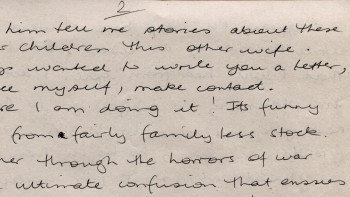 2
him tell me stories about these
s children this other wife.
wanted to write you a letter,
myself, make contact.
I am doing it! Its funny
from fairly family less stock.
through the horrors of war
ultimate confusion that ensues